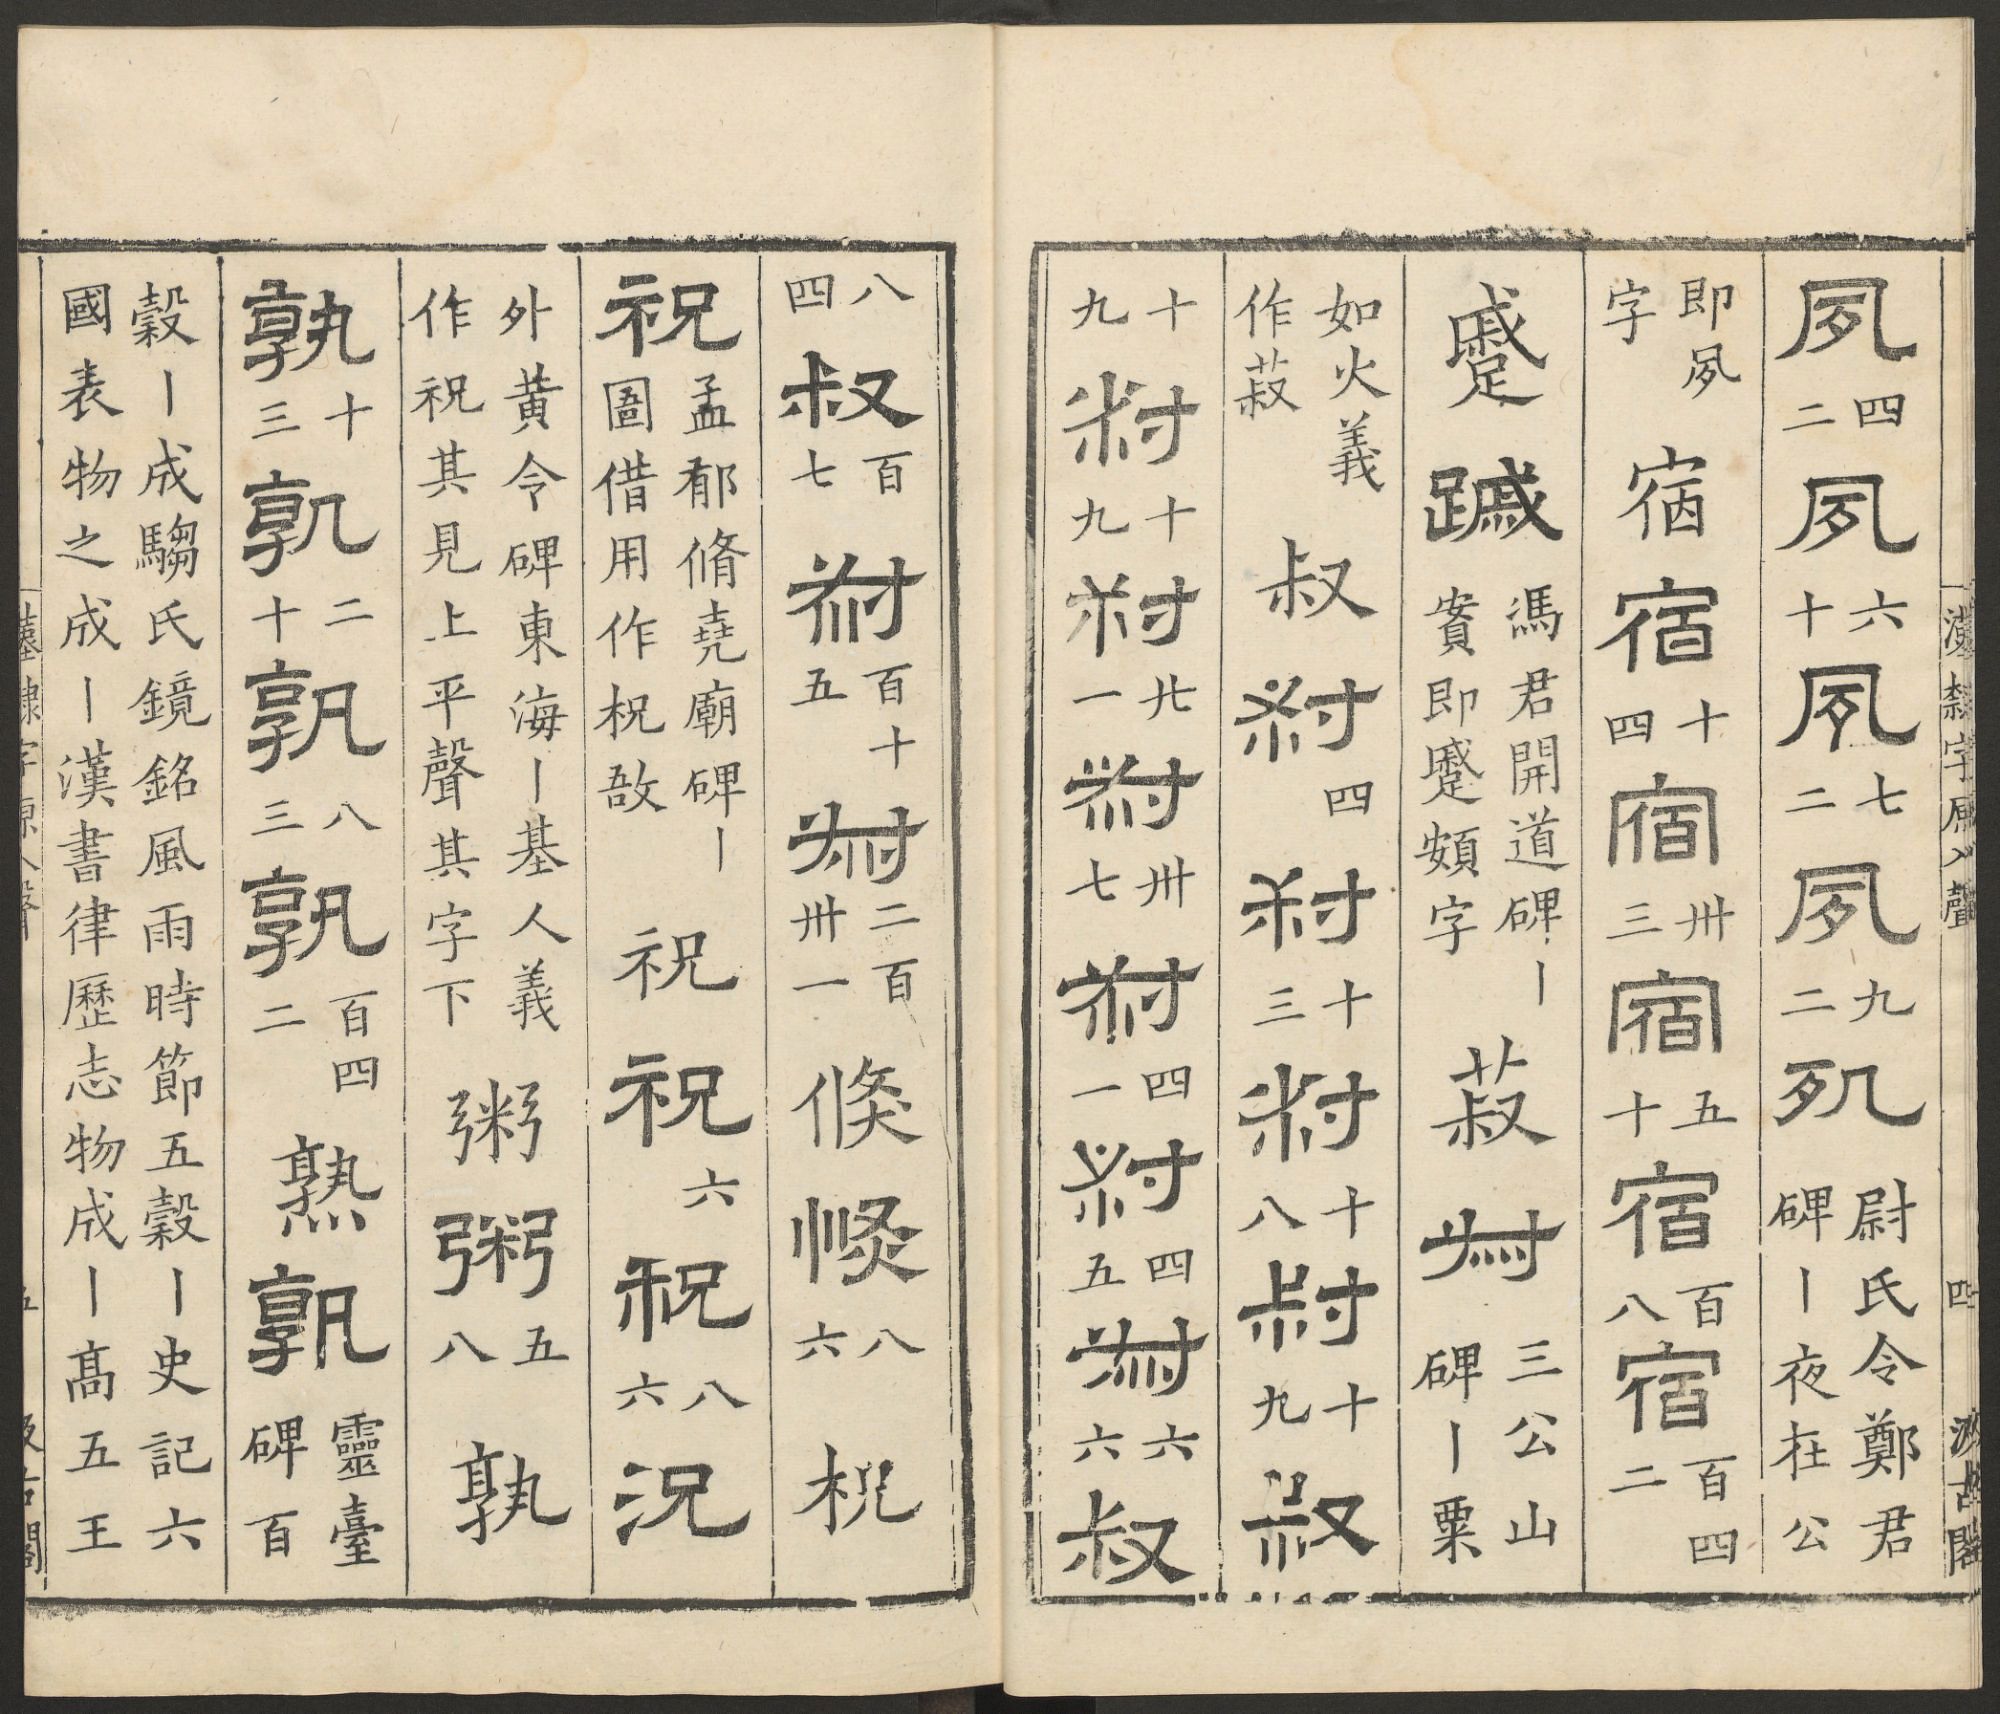 夙四二夙六十二夙七二夙九二夙尉氏令鄭君碑〡夜在公
即夙字 宿宿十四宿卅三宿五十宿百八宿百四二
蹙䠞馮君開道碑〡賷即蹙頞字 菽尗三公山碑〡粟
如火義作菽 叔𡬧四𡬧十三𡬧十八𡬧十九叔
十九𡬧十九𡬧廿一𡬧卅七𡬧四一𡬧四五𡬧六六叔
八四叔百七𡬧百十五𡬧二百卅一 倏倏八六 柷
祝孟郁脩堯廟碑〡圄借用作柷敔 祝祝六祝八六況
外黃令碑東海〡基人義作祝其見上平聲其字下 粥粥五八 孰
孰十三孰二十孰八三孰百四二 熟孰靈臺碑百
穀〡成騶氏鏡銘風雨時節五穀〡史記六
國表物之成〡漢書律歷志物成〡高五王
漢隸字源入聲 四 汲古閣
漢隸字源入聲 五 汲古閣